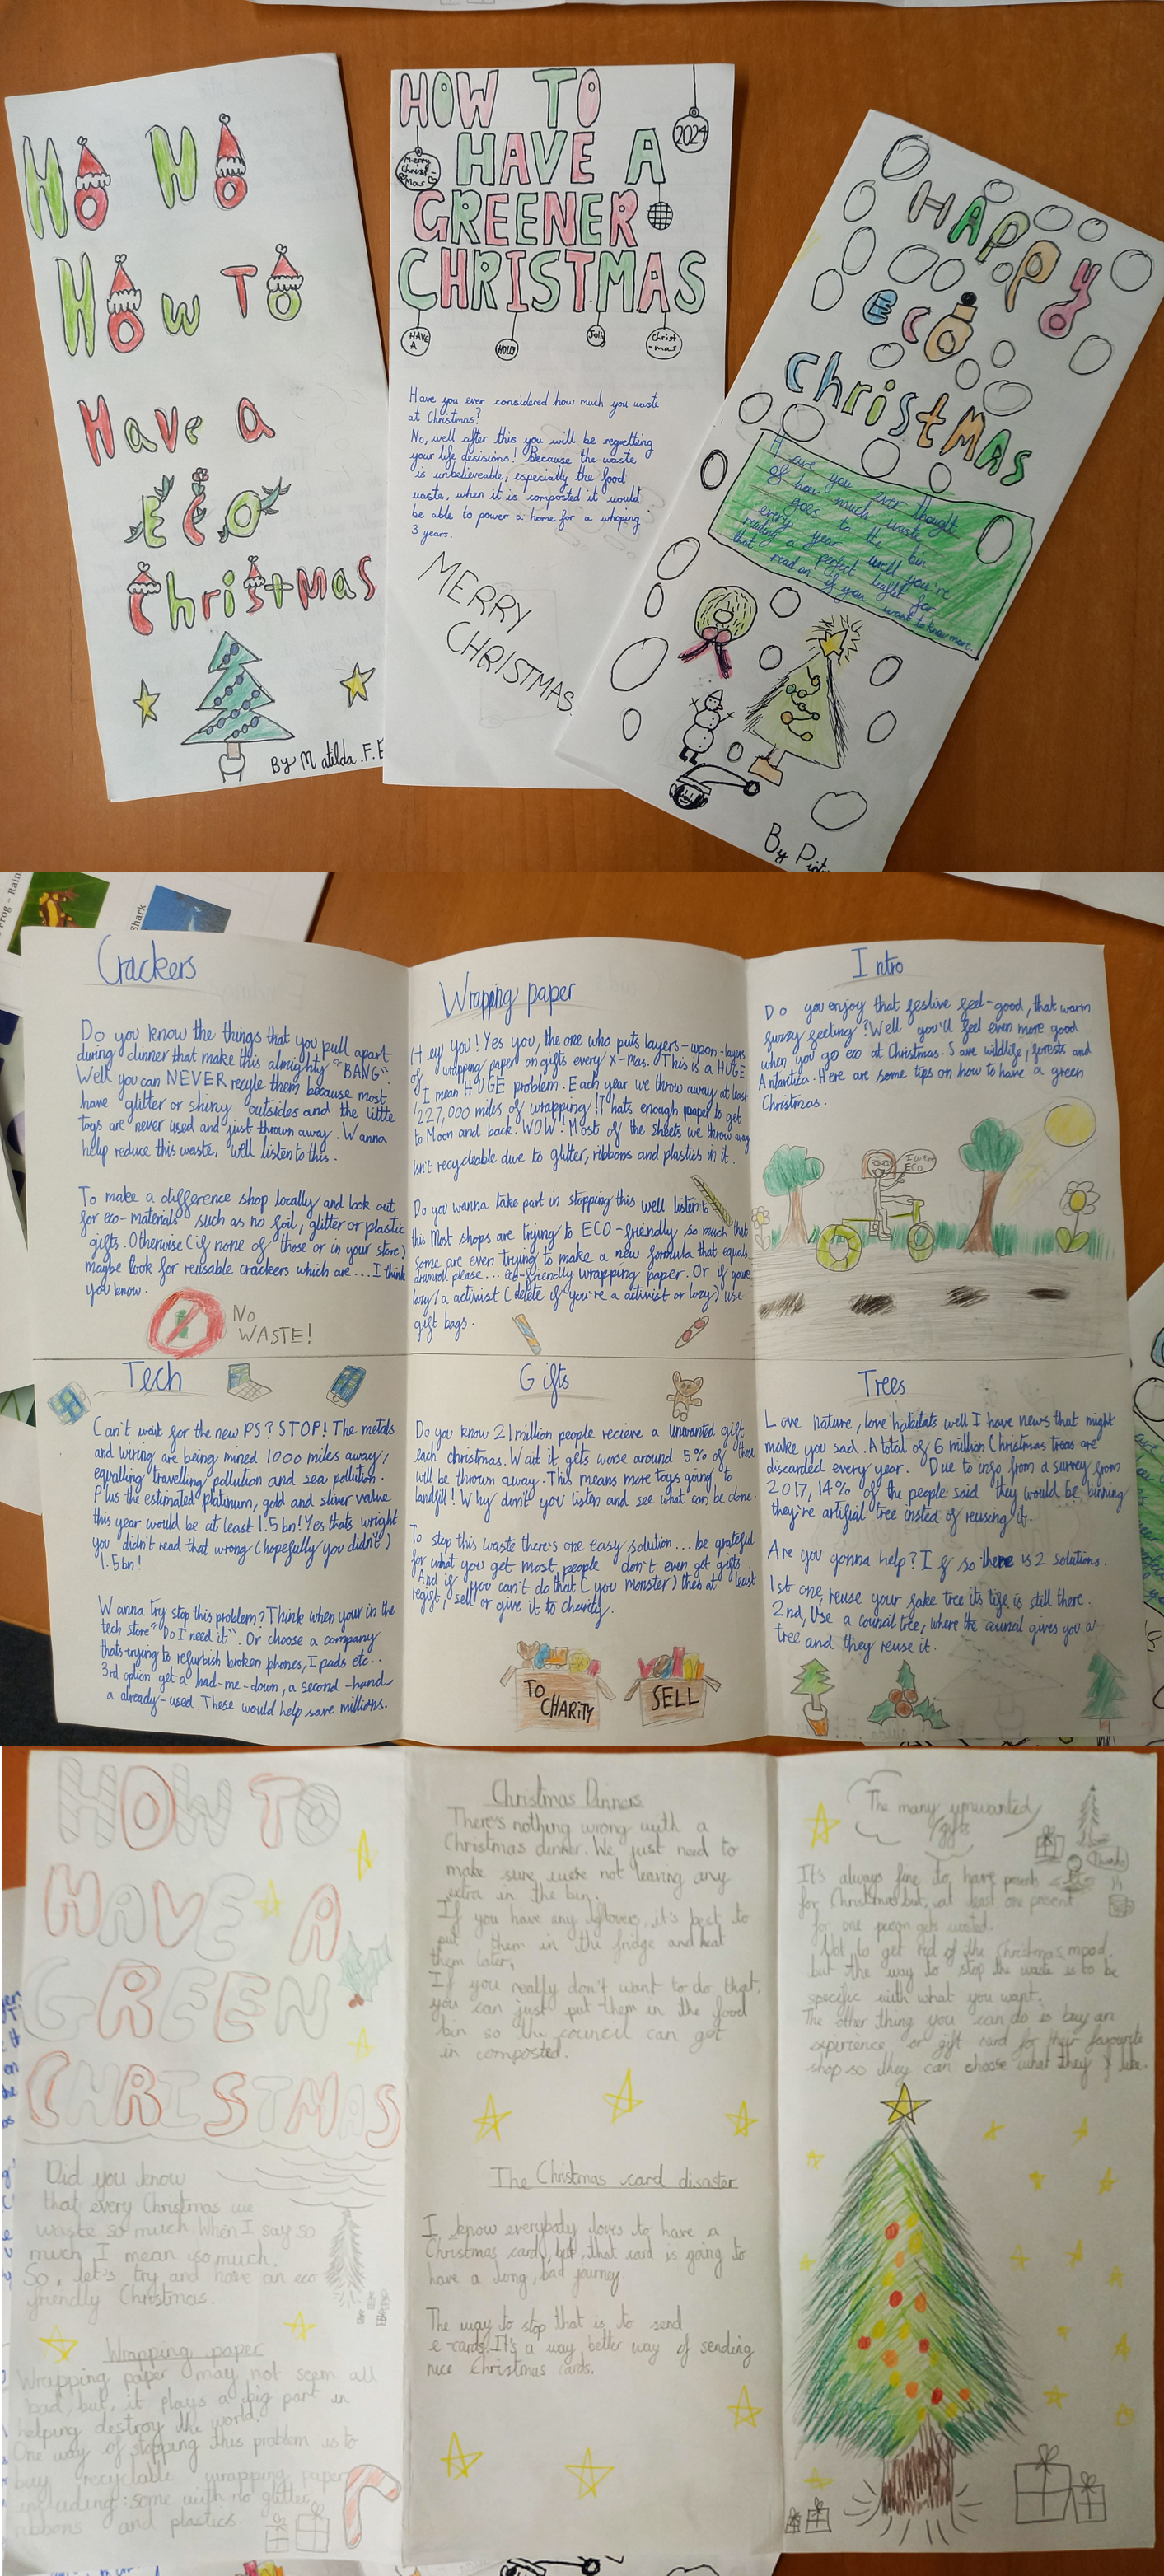 HO HO
HOW TO
Have a
ECO
Christmas
By Matilda.F.E
HOW TO
HAVE A
GREENER
CHRISTMAS
2024
Merry
Christ-
mas
HAVE
A
HOLLY
Jolly
Christ
-mas
Have you ever considered how much you waste
at Christmas?
No, well after this you will be regretting
your life desisions! Because the waste
is unbelieveable, especially the food
waste, when it is composted it would
be able to power a home for a whoping
3 years.
MERRY
CHRISTMAS.
HAPPY
ECO
Christmas
Have you ever thought
of how much waste
goes to the bin
every year well you're
reading a perfect leaflet for
that read on if you want to know more.
By Piot
Frog - Rain
shark
Crackers
Do you know the things that you pull apart
during dinner that make this almighty "BANG".
Well you can NEVER recyle them because most
have glitter or shiny outsides and the little
toys are never used and just thrown away. Wanna
help reduce this waste, well listen to this.
To make a difference shop locally and look out
for eco-materials such as no foil, glitter or plastic
gifts. Otherwise (if none of those or in your store)
maybe look for reusable crackers which are...I think
you know.
No
WASTE!
Wrapping paper
Hey you! Yes you, the one who puts layers-upon-layers
of wrapping paper on gifts every x-mas. This is a HUGE
I mean HUGE problem. Each year we throw away at least
227,000 miles of wrapping! Thats enough paper to get
to Moon and back. WOW! Most of the sheets we throw away
isn't recycleable due to glitter, ribbons and plastics in it.
Do you wanna take part in stopping this well listen to
this Most shops are trying to ECO-friendly so much that
some are even trying to make a new formula that equals
drumroll please... eco-friendly wrapping paper. Or if youre
lazy/a activist (delete if you're a activist or lazy) use
gift bags.
Intro
Do you enjoy that festive feel-good, that warm
fuzzy feeling? Well you'll feel even more good
when you go eco at Christmas. Save wildlife, forests and
Antartica. Here are some tips on how to have a green
Christmas.
ECO
Tech
Can't wait for the new PS? STOP! The metals
and wiring are being mined 1000 miles away,
equalling travelling pollution and sea pollution.
Plus the estimated platinum, gold and sliver value
this year would be at least 1.5bn! Yes thats wright
you didn't read that wrong (hopefully you didn't)
1.5bn!
Wanna try stop this problem? Think when your in the
tech store "Do I need it". Or choose a company
thats trying to refurbish broken phones, I pads etc..
3rd option get a had-me-down, a second-hand
a already-used. These would help save millions.
Gifts
Do you know 21 million people recieve a unwanted gift
each christmas. Wait it gets worse around 5% of those
will be thrown away. This means more toys going to
landfill! Why don't you listen and see what can be done.
To stop this waste there's one easy solution... be grateful
for what you get most people don't even get gifts
And if you can't do that (you monster) then at least
regift, sell or give it to charity.
TO
CHARITY
SELL
Trees
Love nature, love habitats well I have news that might
make you sad. A total of 6 million Christmas trees are
discarded every year. Due to info from a survey from
2017, 14% of the people said they would be binning
they're artifial tree insted of reusing it.
Are you gonna help? If so there is 2 solutions.
1st one, reuse your fake tree its life is still there.
2nd, Use a council tree, where the council gives you a
tree and they reuse it.
HOW TO
HAVE A
GREEN
CHRISTMAS
Did you know
that every Christmas we
waste so much. When I say so
much I mean so much.
So, let's try and have an eco
friendly Christmas.
Wrapping paper
Wrapping paper may not seem all
bad, but, it plays a big part in
helping destroy the world.
One way of stopping this problem is to
buy recyclable wrapping paper
including: some with no glitter,
ribbons and plastics.
Christmas Dinners
There's nothing wrong with a
Christmas dinner. We just need to
make sure were not leaving any
extra in the bin.
If you have any leftovers, it's best to
put them in the fridge and heat
them later.
If you really don't want to do that,
you can just put them in the food
bin so the council can get
in composted.
The Christmas card disaster
I know everybody loves to have a
Christmas card, but, that card is going to
have a long, bad journey.
The way to stop that is to send
e-cards. It's a way better way of sending
nice Christmas cards.
The many unwanted
gifts
Thanks
It's always fine to have presents
for Christmas but, at least one present
for one person gets wasted.
Not to get rid of the Christmas mood
but the way to stop the waste is to be
specific with what you want.
The other thing you can do is buy an
experience or gift card for their favourite
shop so they can choose what they like.